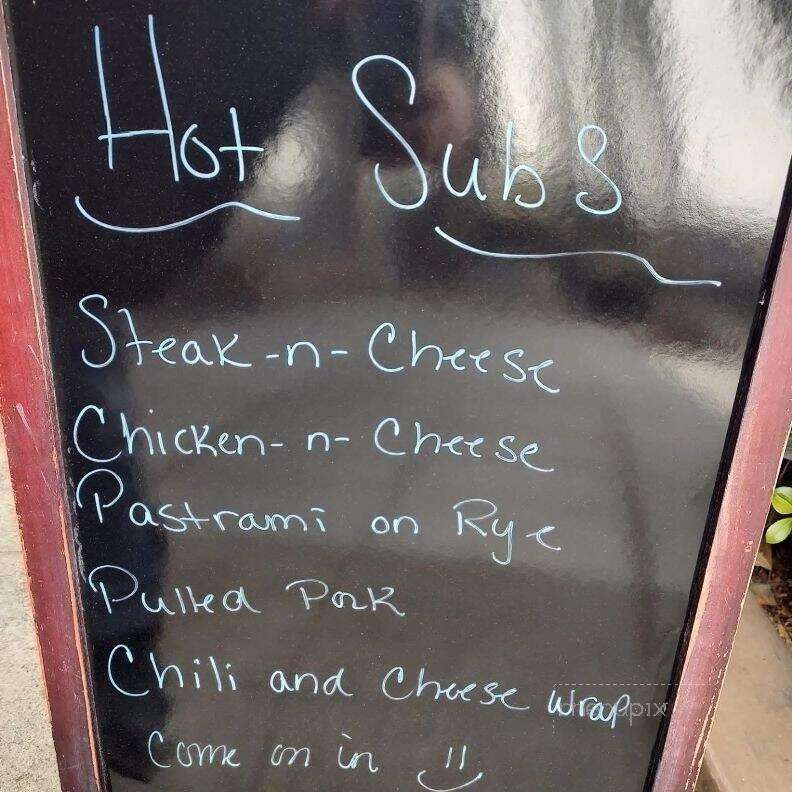 Hot Subs
Steak-n-Cheese
Chicken-n-Cheese
Pastrami on Rye
Pulled Pork
Chili and Cheese wrap
Come on in
menupix